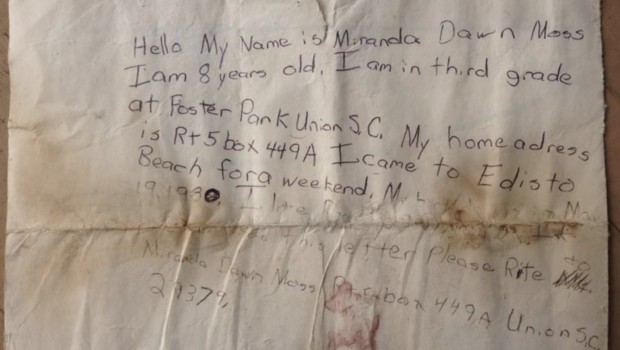 Hello My Name is Miranda Dawn Moss
I am 8 years old. I am in third grade
at Foster Park Union S.C. My home adress
is Rt 5 box 449A I came to Edisto
Beach for a weekend. My
19, 1980. I
this letter Please Rite to
Miranda Dawn Moss Rt 5 box 449A Union S.C.
29379.